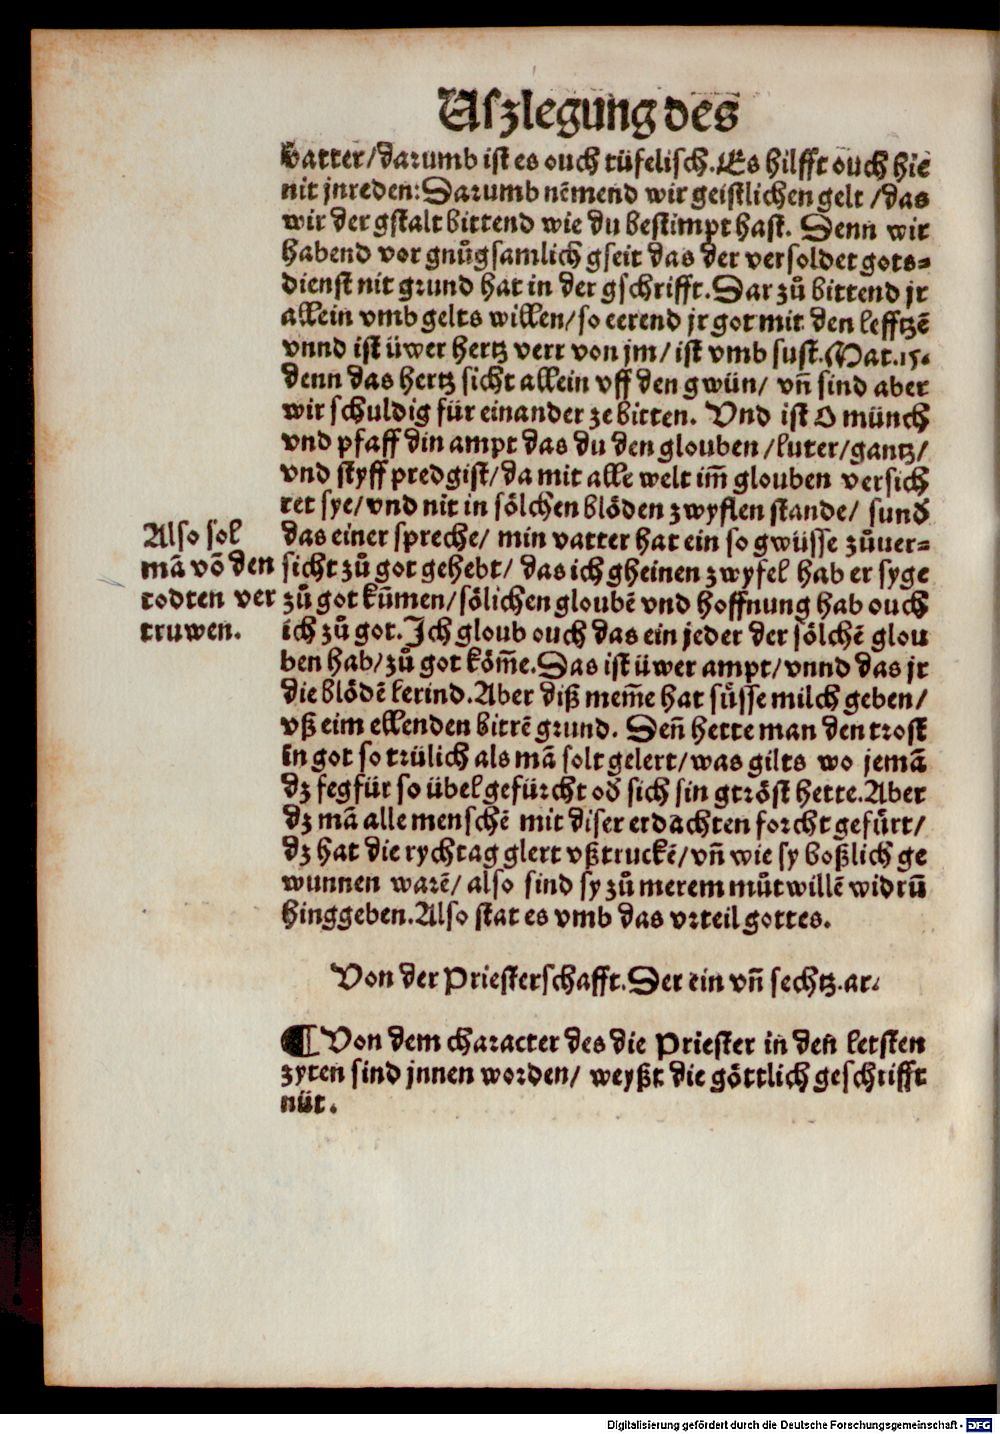 Uſzlegung des
vatter/darumb iſt es ouch tüfeliſch. Es hilfft ouch hie
nit jnreden: Darumb nēmend wir geiſtlichen gelt/das
wir der gſtalt bittend wie du beſtimpt haſt. Denn wir
habend vor gnůgſamlich gſeit das der verſoldet gots⸗
dienſt nit grund hat in der gſchrifft. Dar zů bittend jr
allein vmb gelts willen/ſo eerend jr got mit den lefftzē
vnnd iſt üwer hertz verr von jm/iſt vmb ſuſt. Mat.15.
denn das hertz ſicht allein vff den gwün/ vn̄ ſind aber
wir ſchuldig für einander ze bitten. Vnd iſt O münch
vnd pfaff din ampt das du den glouben/luter/gantz/
vnd ſtyff predgiſt/da mit alle welt im̄ glouben verſich
ret ſye/vnd nit in ſölchen blöden zwyflen ſtande/ ſund
Alſo ſol
mā vō den
todten ver
truwen.
das einer ſpreche/ min vatter hat ein ſo gwüſſe zůuer⸗
ſicht zů got gehebt/ das ich gheinen zwyfel hab er ſyge
zů got kum̄en/ſölichen gloubē vnd hoffnung hab ouch
ich zů got. Ich gloub ouch das ein jeder der ſölchē glou
ben hab/zů got köm̄e. Das iſt üwer ampt/vnnd das jr
die blödē lerind. Aber diß mem̄e hat ſüſſe milch geben/
vß eim ellenden bittrē grund. Den̄ hette man den troſt
in got ſo trülich als mā ſolt gelert/was gilts wo jemā
dz fegfür ſo übel gefürcht od ſich ſin gtröſt hette. Aber
dz mā alle menſchē mit diſer erdachten forcht gefürt/
dz hat die rychtag glert vßtruckē/vn̄ wie ſy boßlich ge
wunnen warē/alſo ſind ſy zů merem můtwillē widrū
hinggeben. Alſo ſtat es vmb das vrteil gottes.
Von der Prieſterſchafft. Der ein vn̄ ſechtz. ar.
¶ Von dem character des die Prieſter in den letſten
zyten ſind jnnen worden/ weyßt die göttlich geſchrifft
nüt.
Digitalisierung gefördert durch die Deutsche Forschungsgemeinschaft - DFG